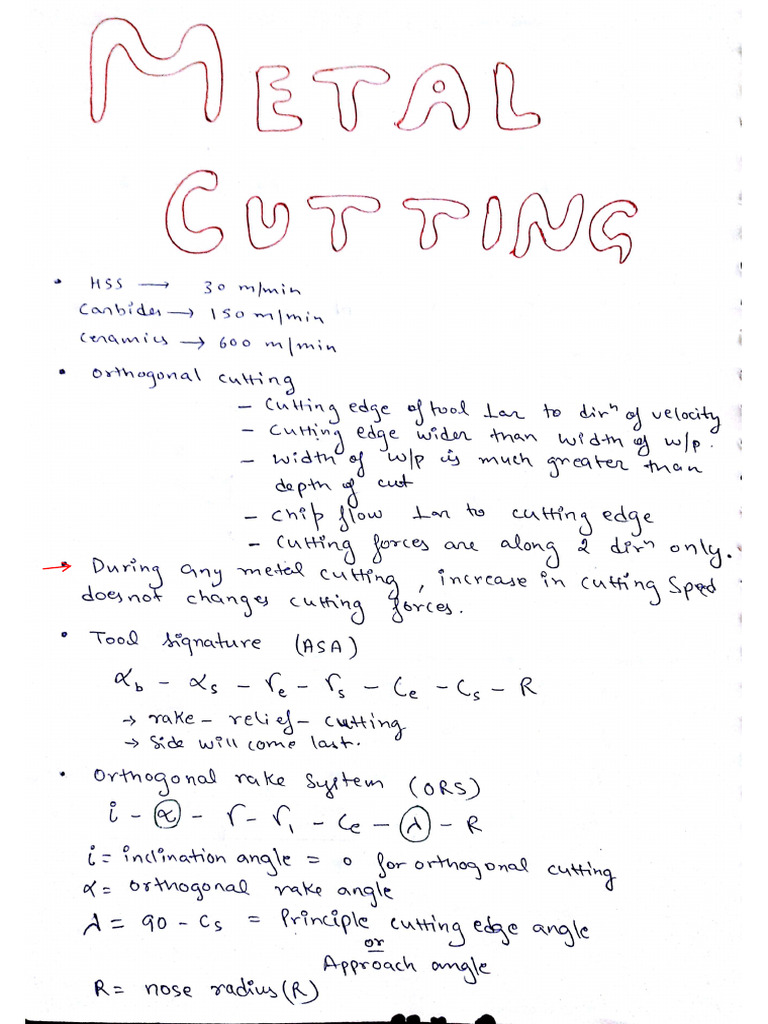 METAL
CUTTING
• HSS → 30 m/min
Carbides → 150 m/min
Ceramics → 600 m/min
• Orthogonal cutting
– Cutting edge of tool ⊥ar to dirⁿ of velocity
– Cutting edge wider than width of w/p.
– Width of w/p is much greater than
depth of cut
– Chip flow ⊥ar to cutting edge
– Cutting forces are along 2 dirⁿ only.
→ During any metal cutting, increase in cutting Speed
does not changes cutting forces.
• Tool signature (ASA)
α_b – α_s – r_e – r_s – C_e – C_s – R
→ rake – relief – cutting
→ Side will come last.
• Orthogonal rake system (ORS)
i – α – r – r₁ – C_e – λ – R
i = inclination angle = 0 for orthogonal cutting
α = orthogonal rake angle
λ = 90 – C_s = Principle cutting edge angle
or
Approach angle
R = nose radius (R)